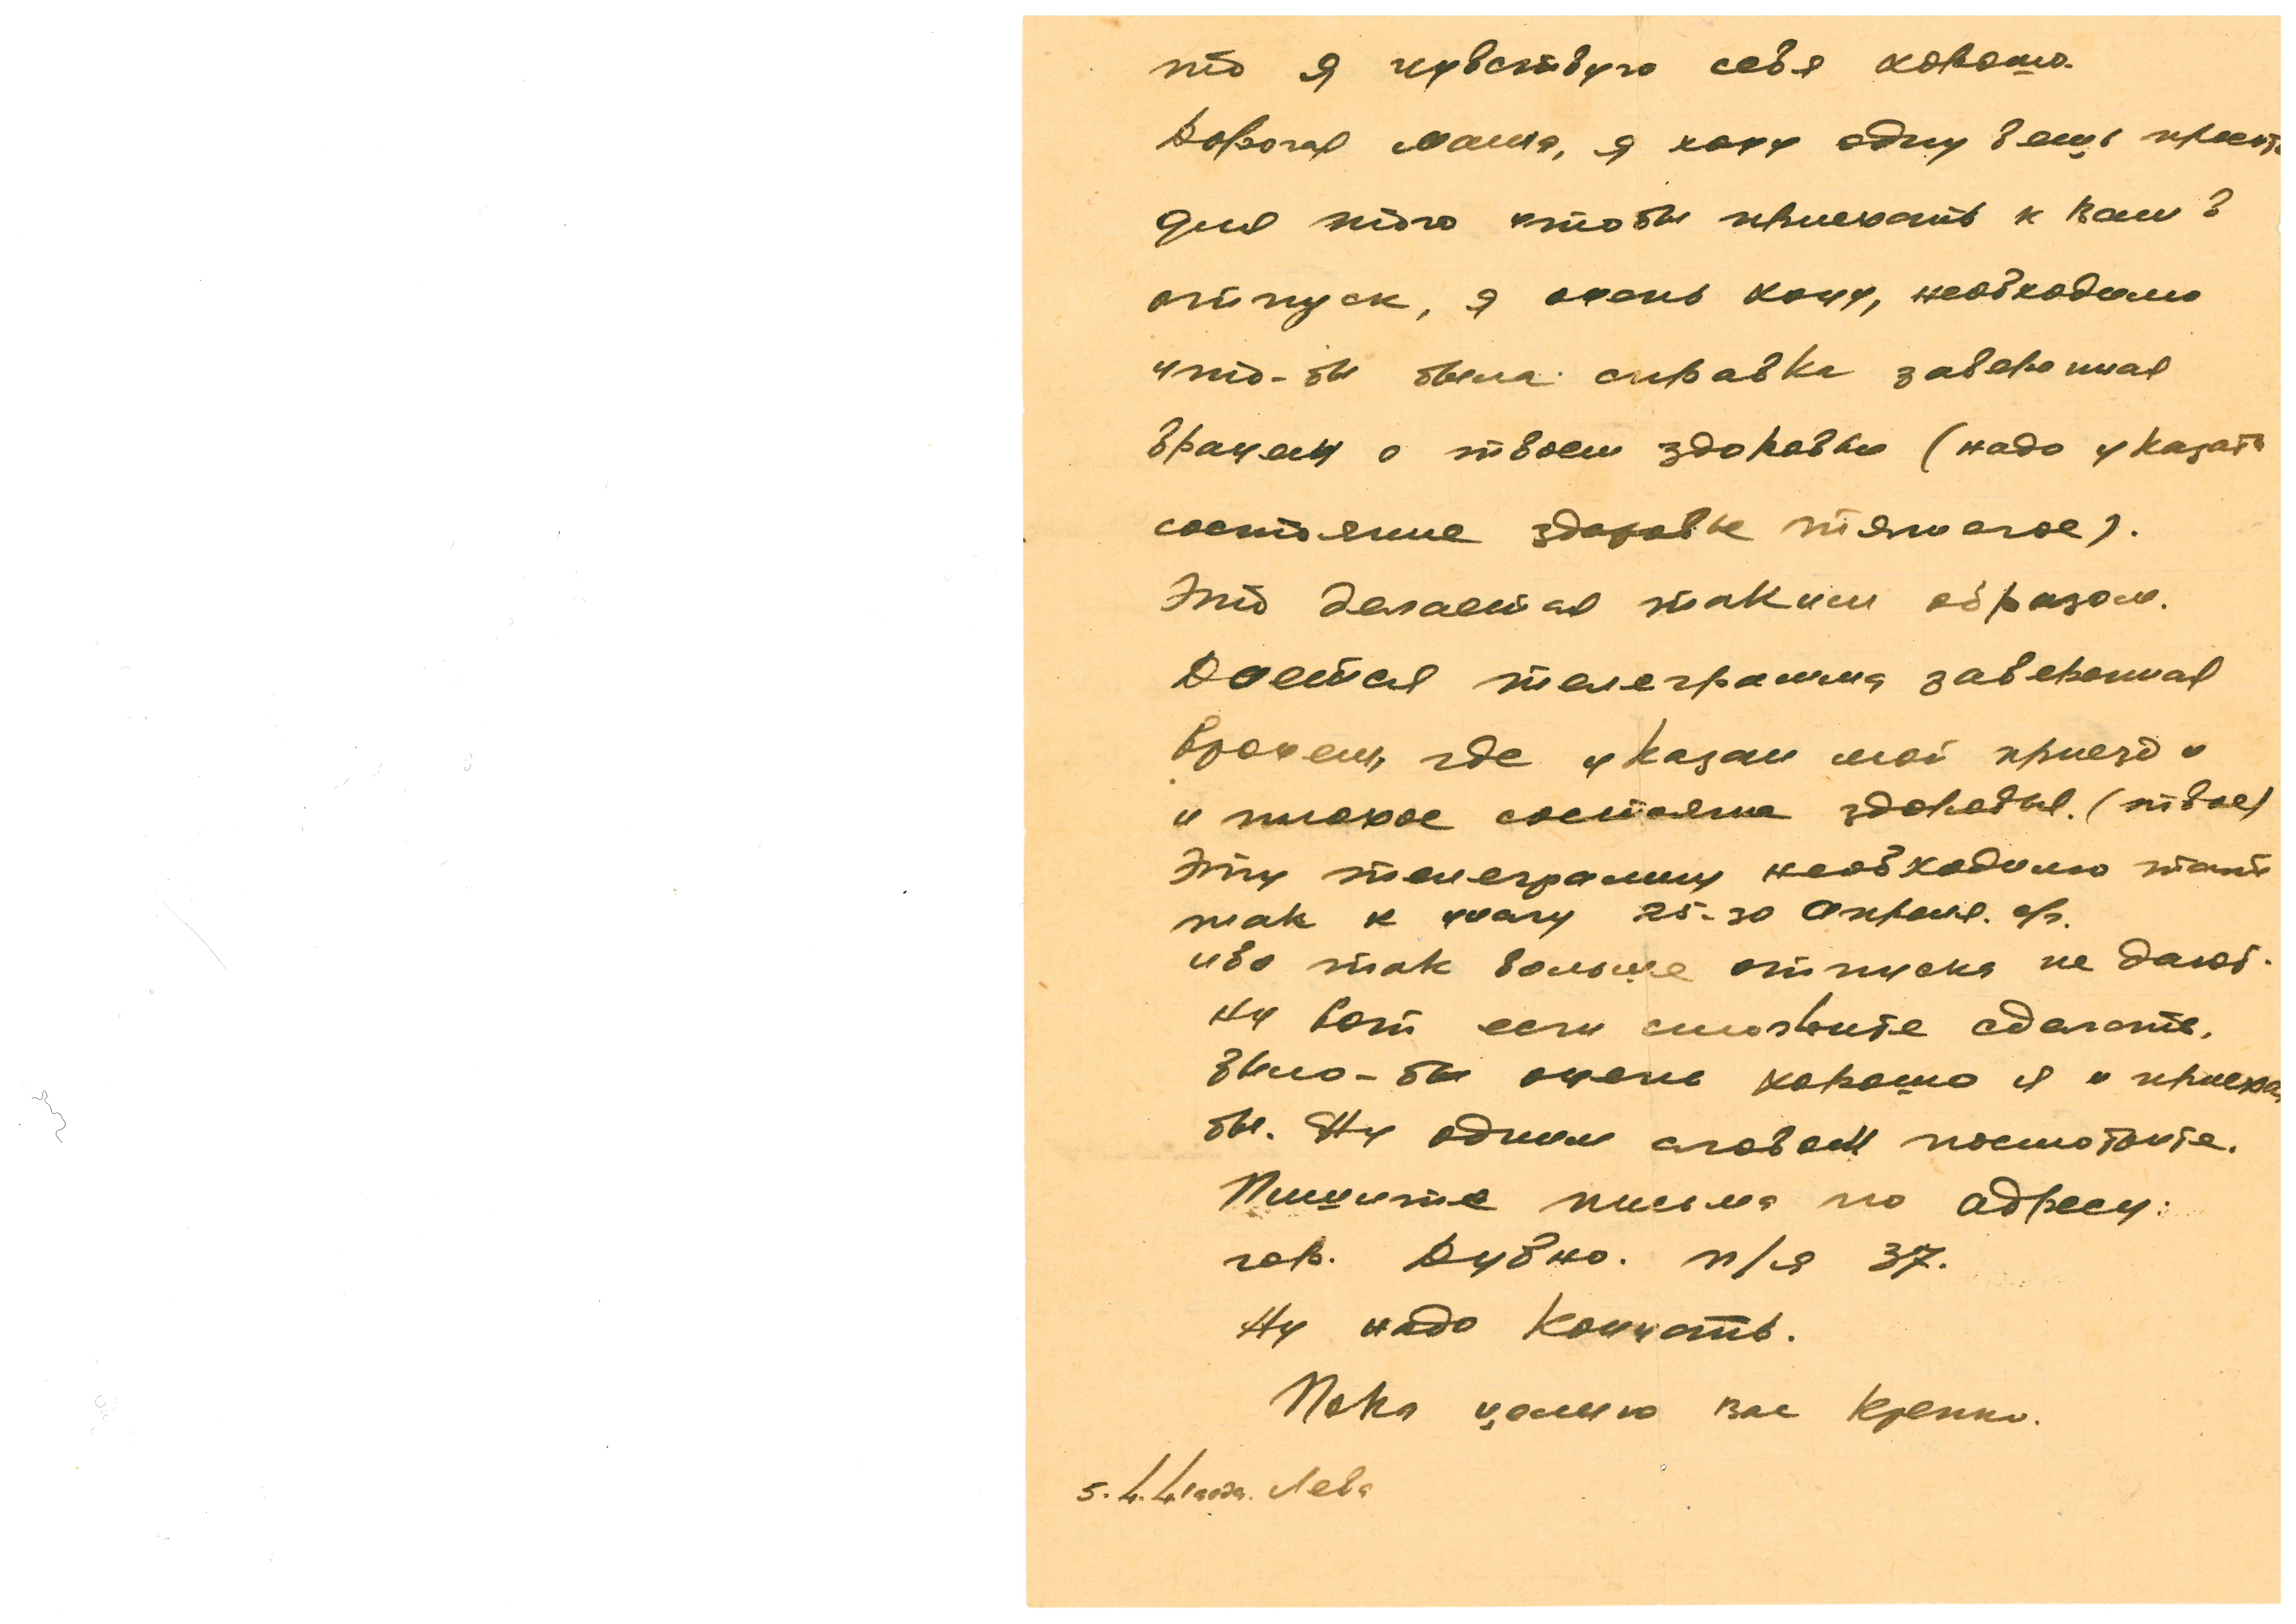 то я чувствую себя хорошо.
Дорогая мама, я хочу одну вещь просить
для того чтобы приехать к вам в
отпуск, я очень хочу, необходимо
что-бы была справка заверенная
врачем о твоем здоровьи (надо указать
состояние здоровье тяжелое).
Это делается таким образом.
Дается телеграмма заверенная
врачем, где указан мой приезд и
и плохое состояние здоровья. (твое)
Эту телеграмму необходимо дать
так к числу 25-30 Апреля. с/г.
ибо так больше отпуска не дают.
Ну вот если сможите сделать,
было-бы очень хорошо я и приехал
бы. Ну одним словом посмотрите.
Пишите письма по адресу:
гор. Дубно. п/я 37.
Ну надо кончать.
Пока целую вас крепко.
5.4.41 года. Лева